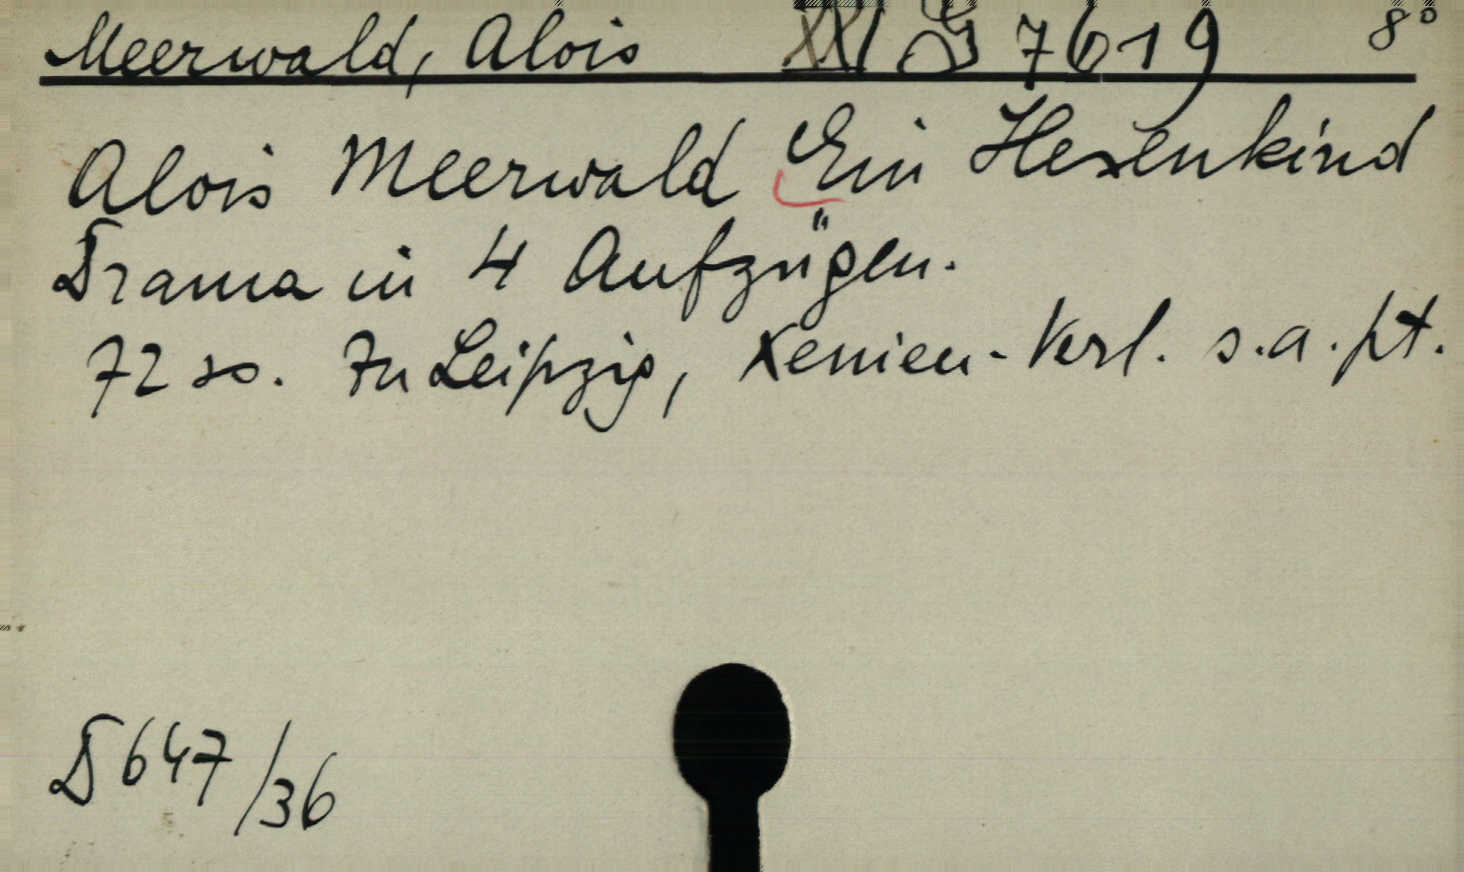 Meerwald, Alois XXI G 7619 8°
Alois Meerwald Ein Hexenkind
Drama in 4 Aufzügen.
72 so. Zu Leipzig, Xenien-Verl. s.a. pt.
D 647/36